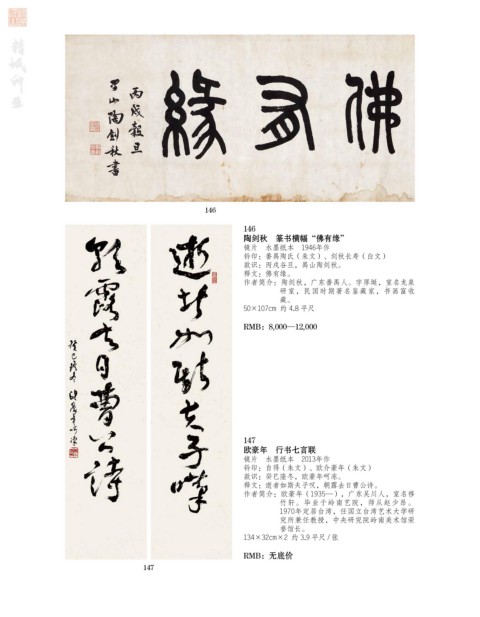 佛有緣
丙戌穀旦
禺山陶劍秋書
146
逝者如斯夫子嘆
朝露去日曹公詩
癸巳隆冬 歐豪年呵凍
147
146
陶剑秋 篆书横幅“佛有缘”
镜片 水墨纸本 1946年作
钤印：番禺陶氏（朱文）、剑秋长寿（白文）
款识：丙戌谷旦，禺山陶剑秋。
释文：佛有缘。
作者简介：陶剑秋，广东番禺人，字厚埏，室名龙泉
研室，民国时期著名鉴藏家，书画富收
藏。
50×107cm 约 4.8 平尺
RMB: 8,000—12,000
147
欧豪年 行书七言联
镜片 水墨纸本 2013年作
钤印：自得（朱文）、欧介豪年（朱文）
款识：癸巳隆冬，欧豪年呵冻。
释文：逝者如斯夫子叹，朝露去日曹公诗。
作者简介：欧豪年（1935—），广东吴川人，室名移
竹轩。毕业于岭南艺院，师从赵少昂。
1970年定居台湾，任国立台湾艺术大学研
究所兼任教授，中央研究院岭南美术馆荣
誉馆长。
134×32cm×2 约 3.9 平尺 / 张
RMB: 无底价